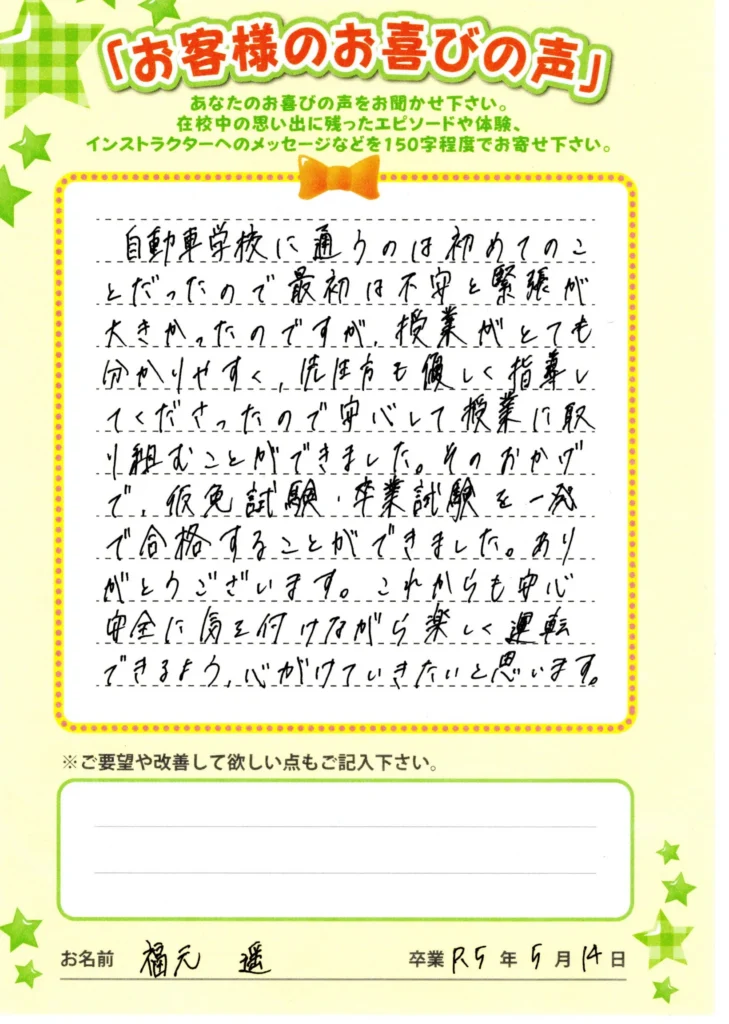 「お客様のお喜びの声」
あなたのお喜びの声をお聞かせ下さい。
在校中の思い出に残ったエピソードや体験、
インストラクターへのメッセージなどを150字程度でお寄せ下さい。
自動車学校に通うのは初めてのこ
とだったので最初は不安と緊張が
大きかったのですが、授業がとても
分かりやすく、先生方も優しく指導し
てくださったので安心して授業に取
り組むことができました。そのおかげ
で、仮免試験・卒業試験を一発
で合格することができました。あり
がとうございます。これからも安心
安全に気を付けながら楽しく運転
できるよう、心がけていきたいと思います。
※ご要望や改善して欲しい点もご記入下さい。
お名前 福元 遥 卒業 R5 年 5 月 14 日